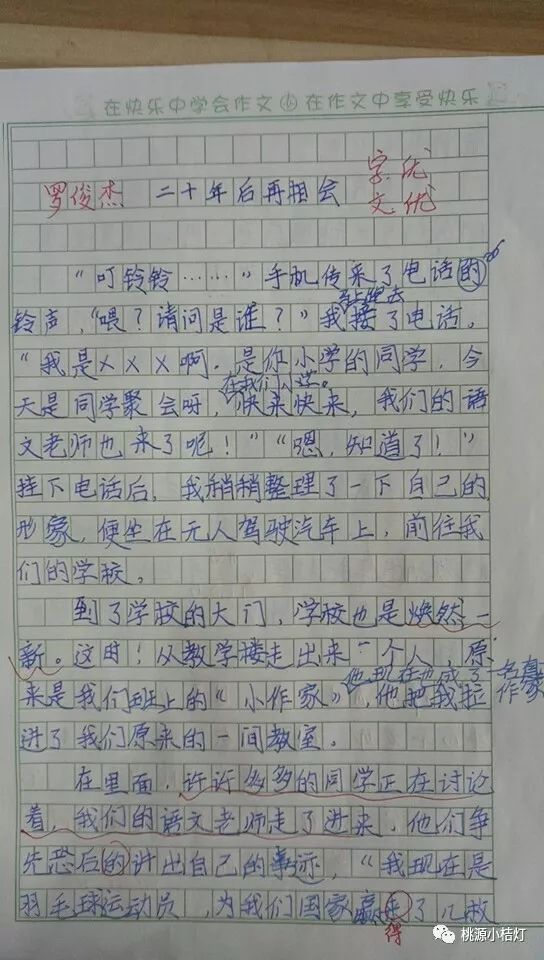 在快乐中学会作文 在作文中享受快乐
罗俊杰 二十年后再相会 字优
文优
“叮铃铃……”手机传来了电话的
铃声，“喂？请问是谁？”我接了电话。
“我是×××啊，是你小学的同学，今
在我们小学。
天是同学聚会呀，快来快来，我们的语
文老师也来了呢！”“嗯，知道了！”
挂下电话后，我稍稍整理了一下自己的
形象，便坐在无人驾驶汽车上，前往我
们的学校。
到了学校的大门，学校也是焕然一
新。这时！从教学楼走出来一个人，原
他现在也成了一名真
来是我们班上的“小作家”，他把我拉 作家
进了我们原来的一间教室。
在里面，许许多多的同学正在讨论
着，我们的语文老师走了进来，他们争
先恐后的讲出自己的事迹，“我现在是
羽毛球运动员，为我们国家赢走了几枚
得
桃源小桔灯